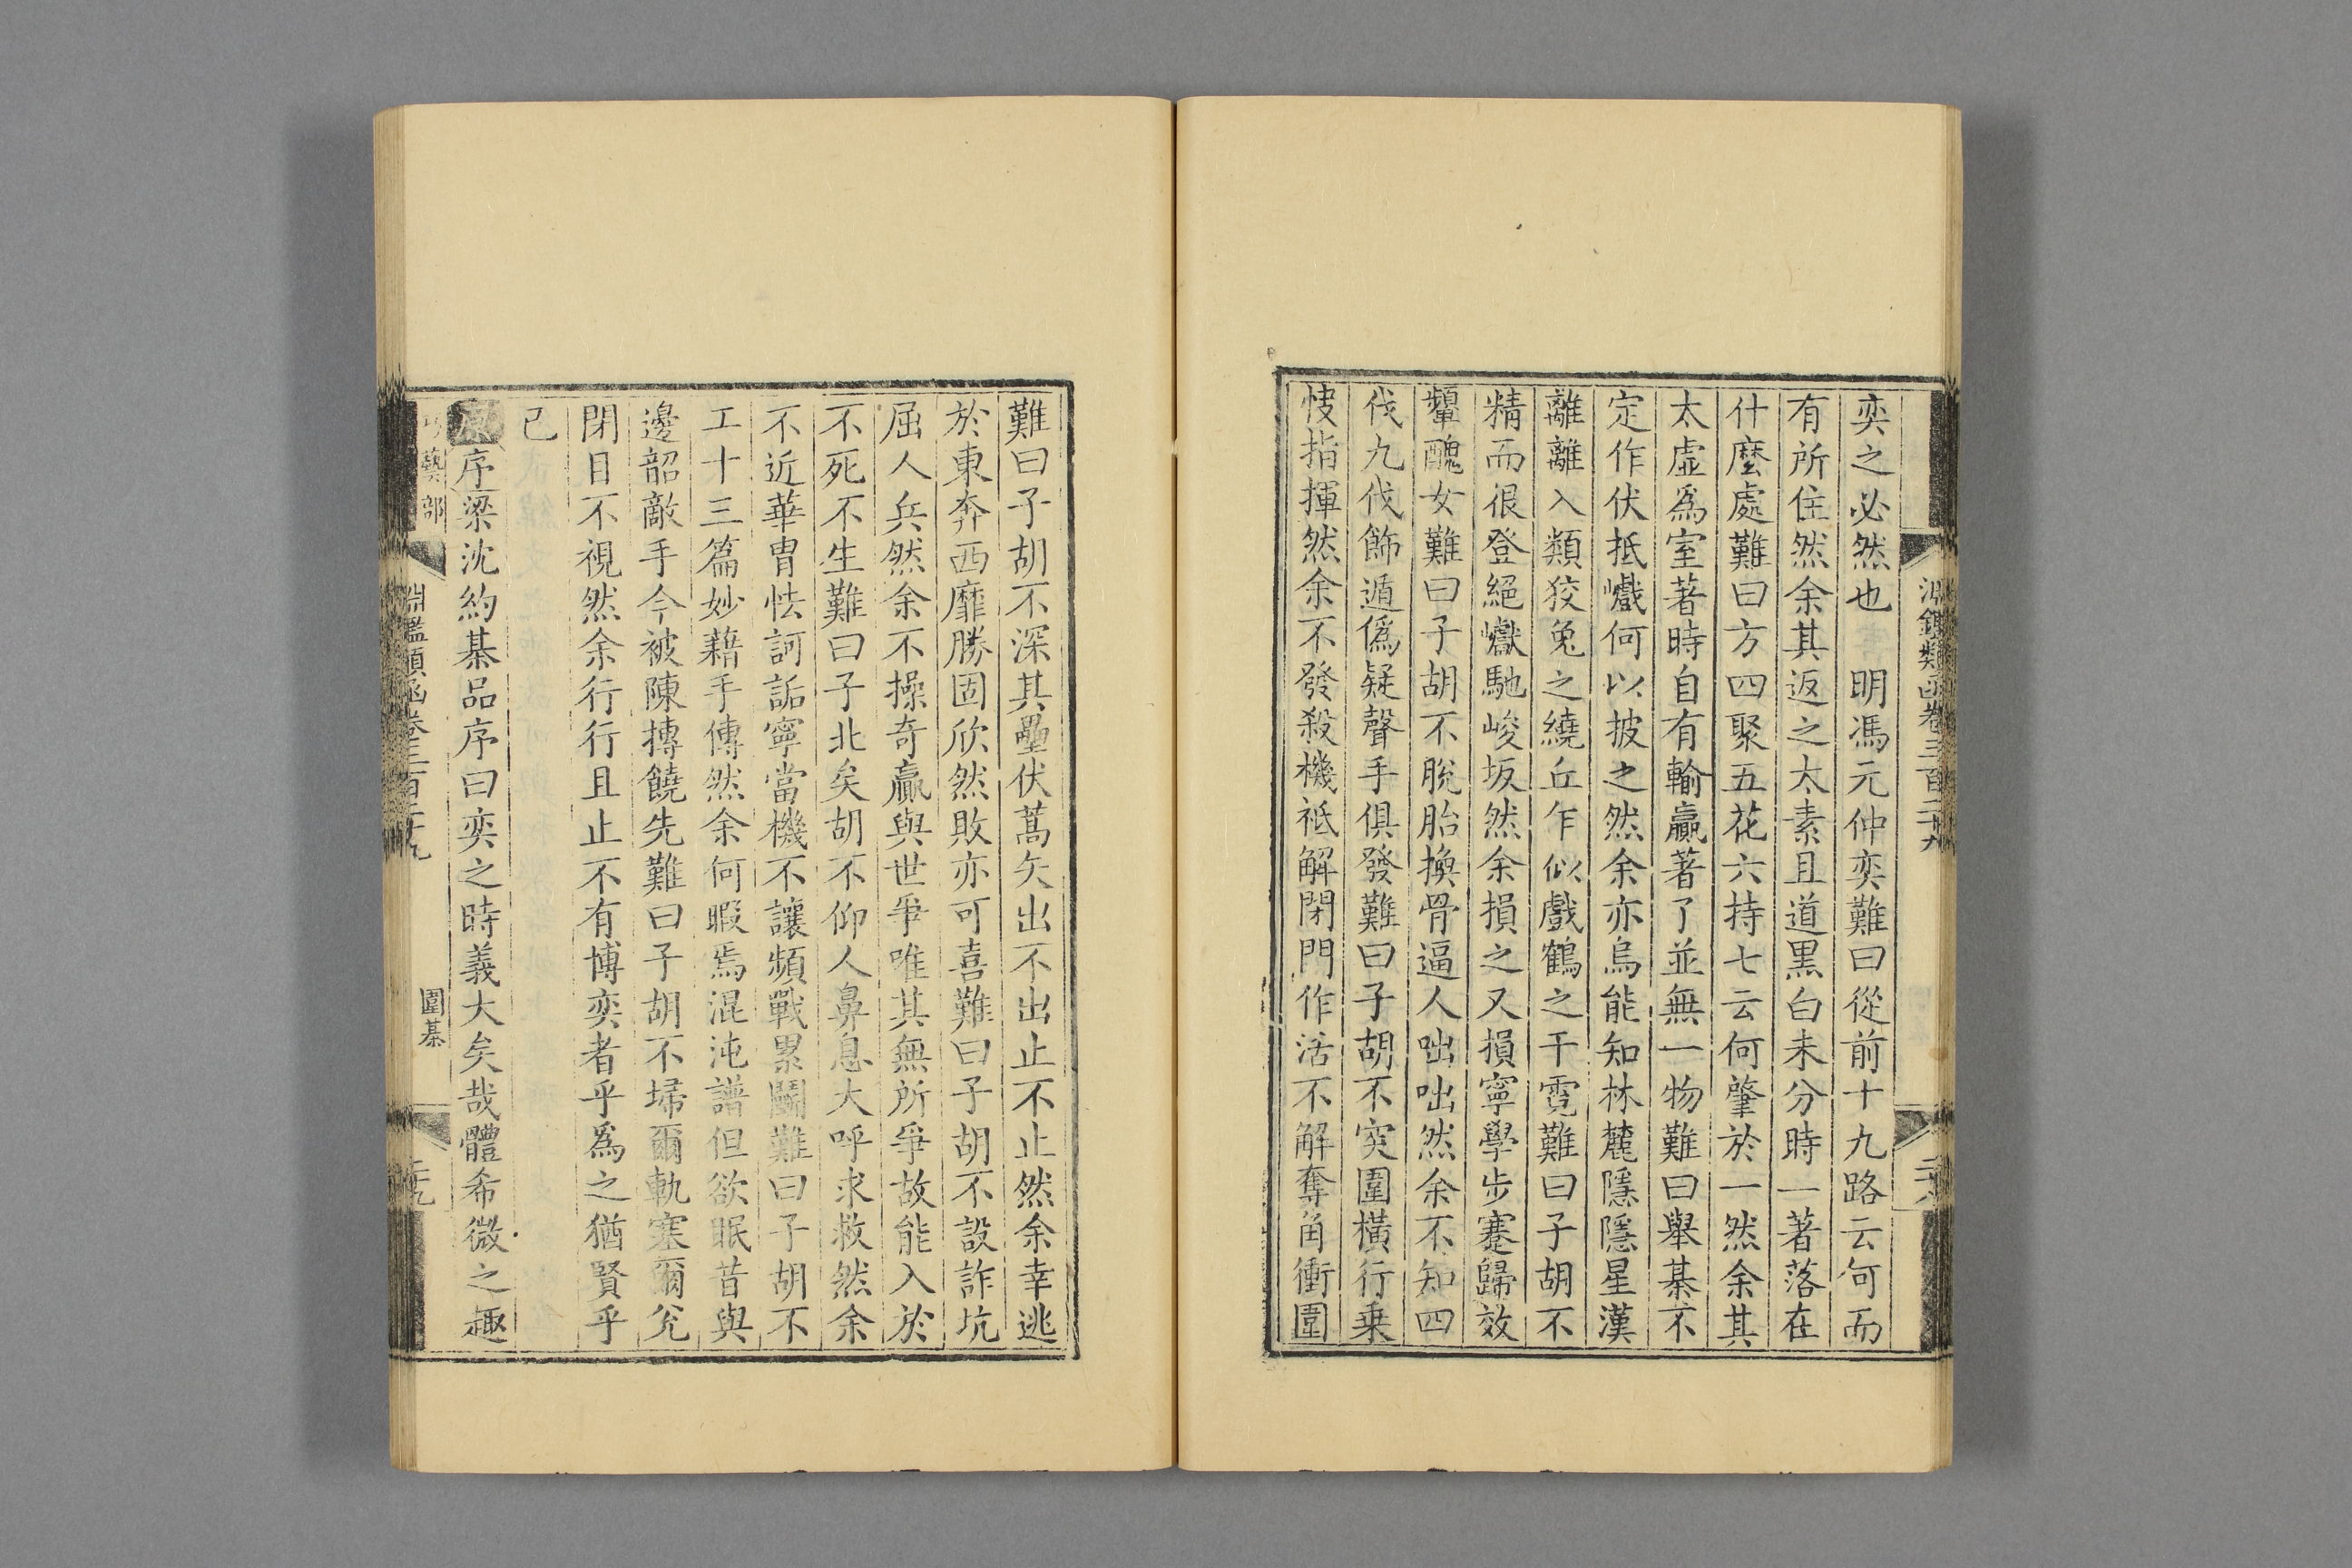 淵鑑類函卷三百二十九
奕之必然也 明馮元仲奕難曰從前十九路云何而
有所住然余其返之太素且道黑白未分時一著落在
什麼處難曰方四聚五花六持七云何肇於一然余其
太虛爲室著時自有輸贏著了並無一物難曰舉棊不
定作伏抵巇何以披之然余亦烏能知林麓隱隱星漢
離離入類狡兔之繞丘乍似戲鶴之干霓難曰子胡不
精而很登絕巘馳峻坂然余損之又損寧學步蹇歸效
顰醜女難曰子胡不脫胎換骨逼人咄咄然余不知四
伐九伐飾遁僞疑聲手俱發難曰子胡不突圍橫行乗
快指揮然余不發殺機祗解閉門作活不解奪角衝圍
難曰子胡不深其壘伏蒿矢出不出止不止然余幸逃
於東奔西靡勝固欣然敗亦可喜難曰子胡不設詐坑
屈人兵然余不操奇贏與世爭唯其無所爭故能入於
不死不生難曰子北矣胡不仰人鼻息大呼求救然余
不近華冑怯訶詬寧當機不讓頻戰累鬭難曰子胡不
工十三篇妙藉手傳然余何暇焉混沌譜但欲眠昔與
邊韶敵手今被陳摶饒先難曰子胡不埽爾軌塞爾兊
閉目不視然余行行且止不有博奕者乎爲之猶賢乎
已
原序梁沈約棊品序曰奕之時義大矣哉體希微之趣
藝部
淵鑑類函卷三百二十九
圍棊
二十九